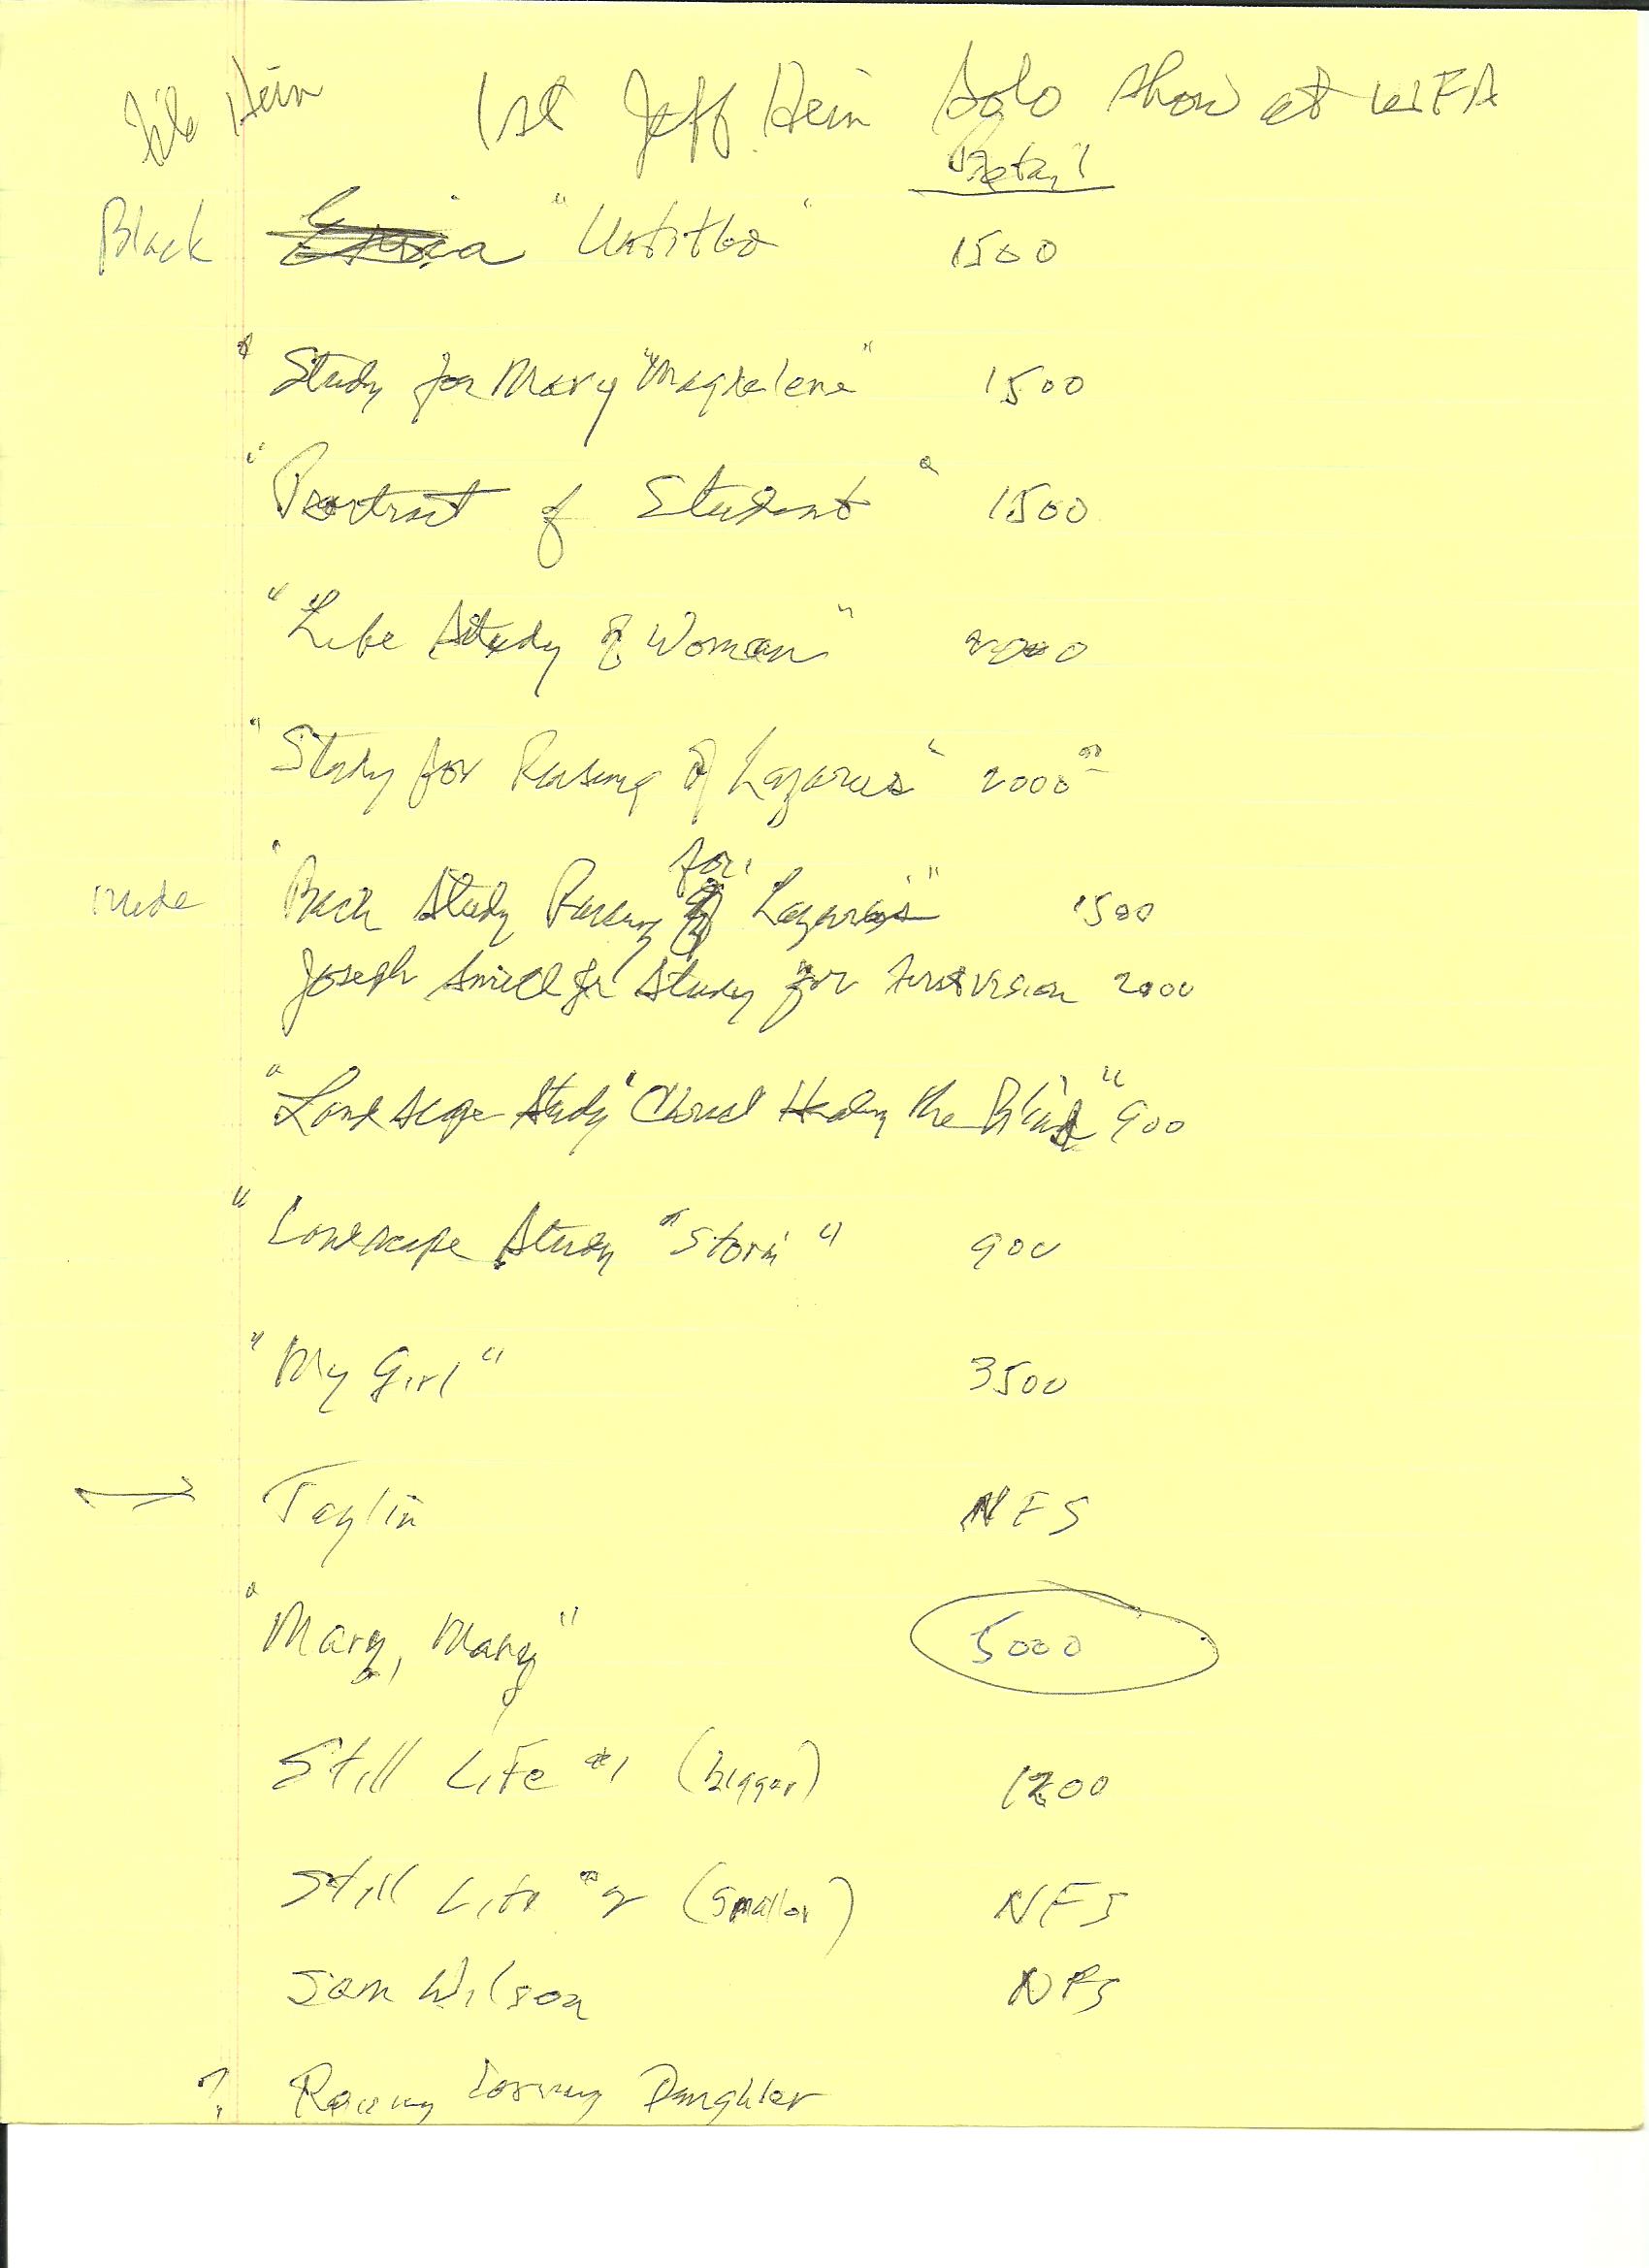 File Hein
1st Jeff Hein Solo Show at WFA
Retail
Black "Untitled" 1500
"Study for Mary "Magdalene" 1500
"Portrait of Student" 1500
"Life Study of Woman" 2000
"Study for Raising of Lazarus" 2000 00
for
nude "Back Study Raising of Lazarus" 1500
Joseph Smith Jr Study for First Vision 2000
"Landscape Study "Christ Healing the Blind" 900
"Landscape Study "Storm" 900
"My Girl" 3500
Taylin NFS
"Mary, Mary" 5000
Still Life #1 (bigger) 1200
Still Life #2 (smaller) NFS
Sam Wilson NFS
? Daughter